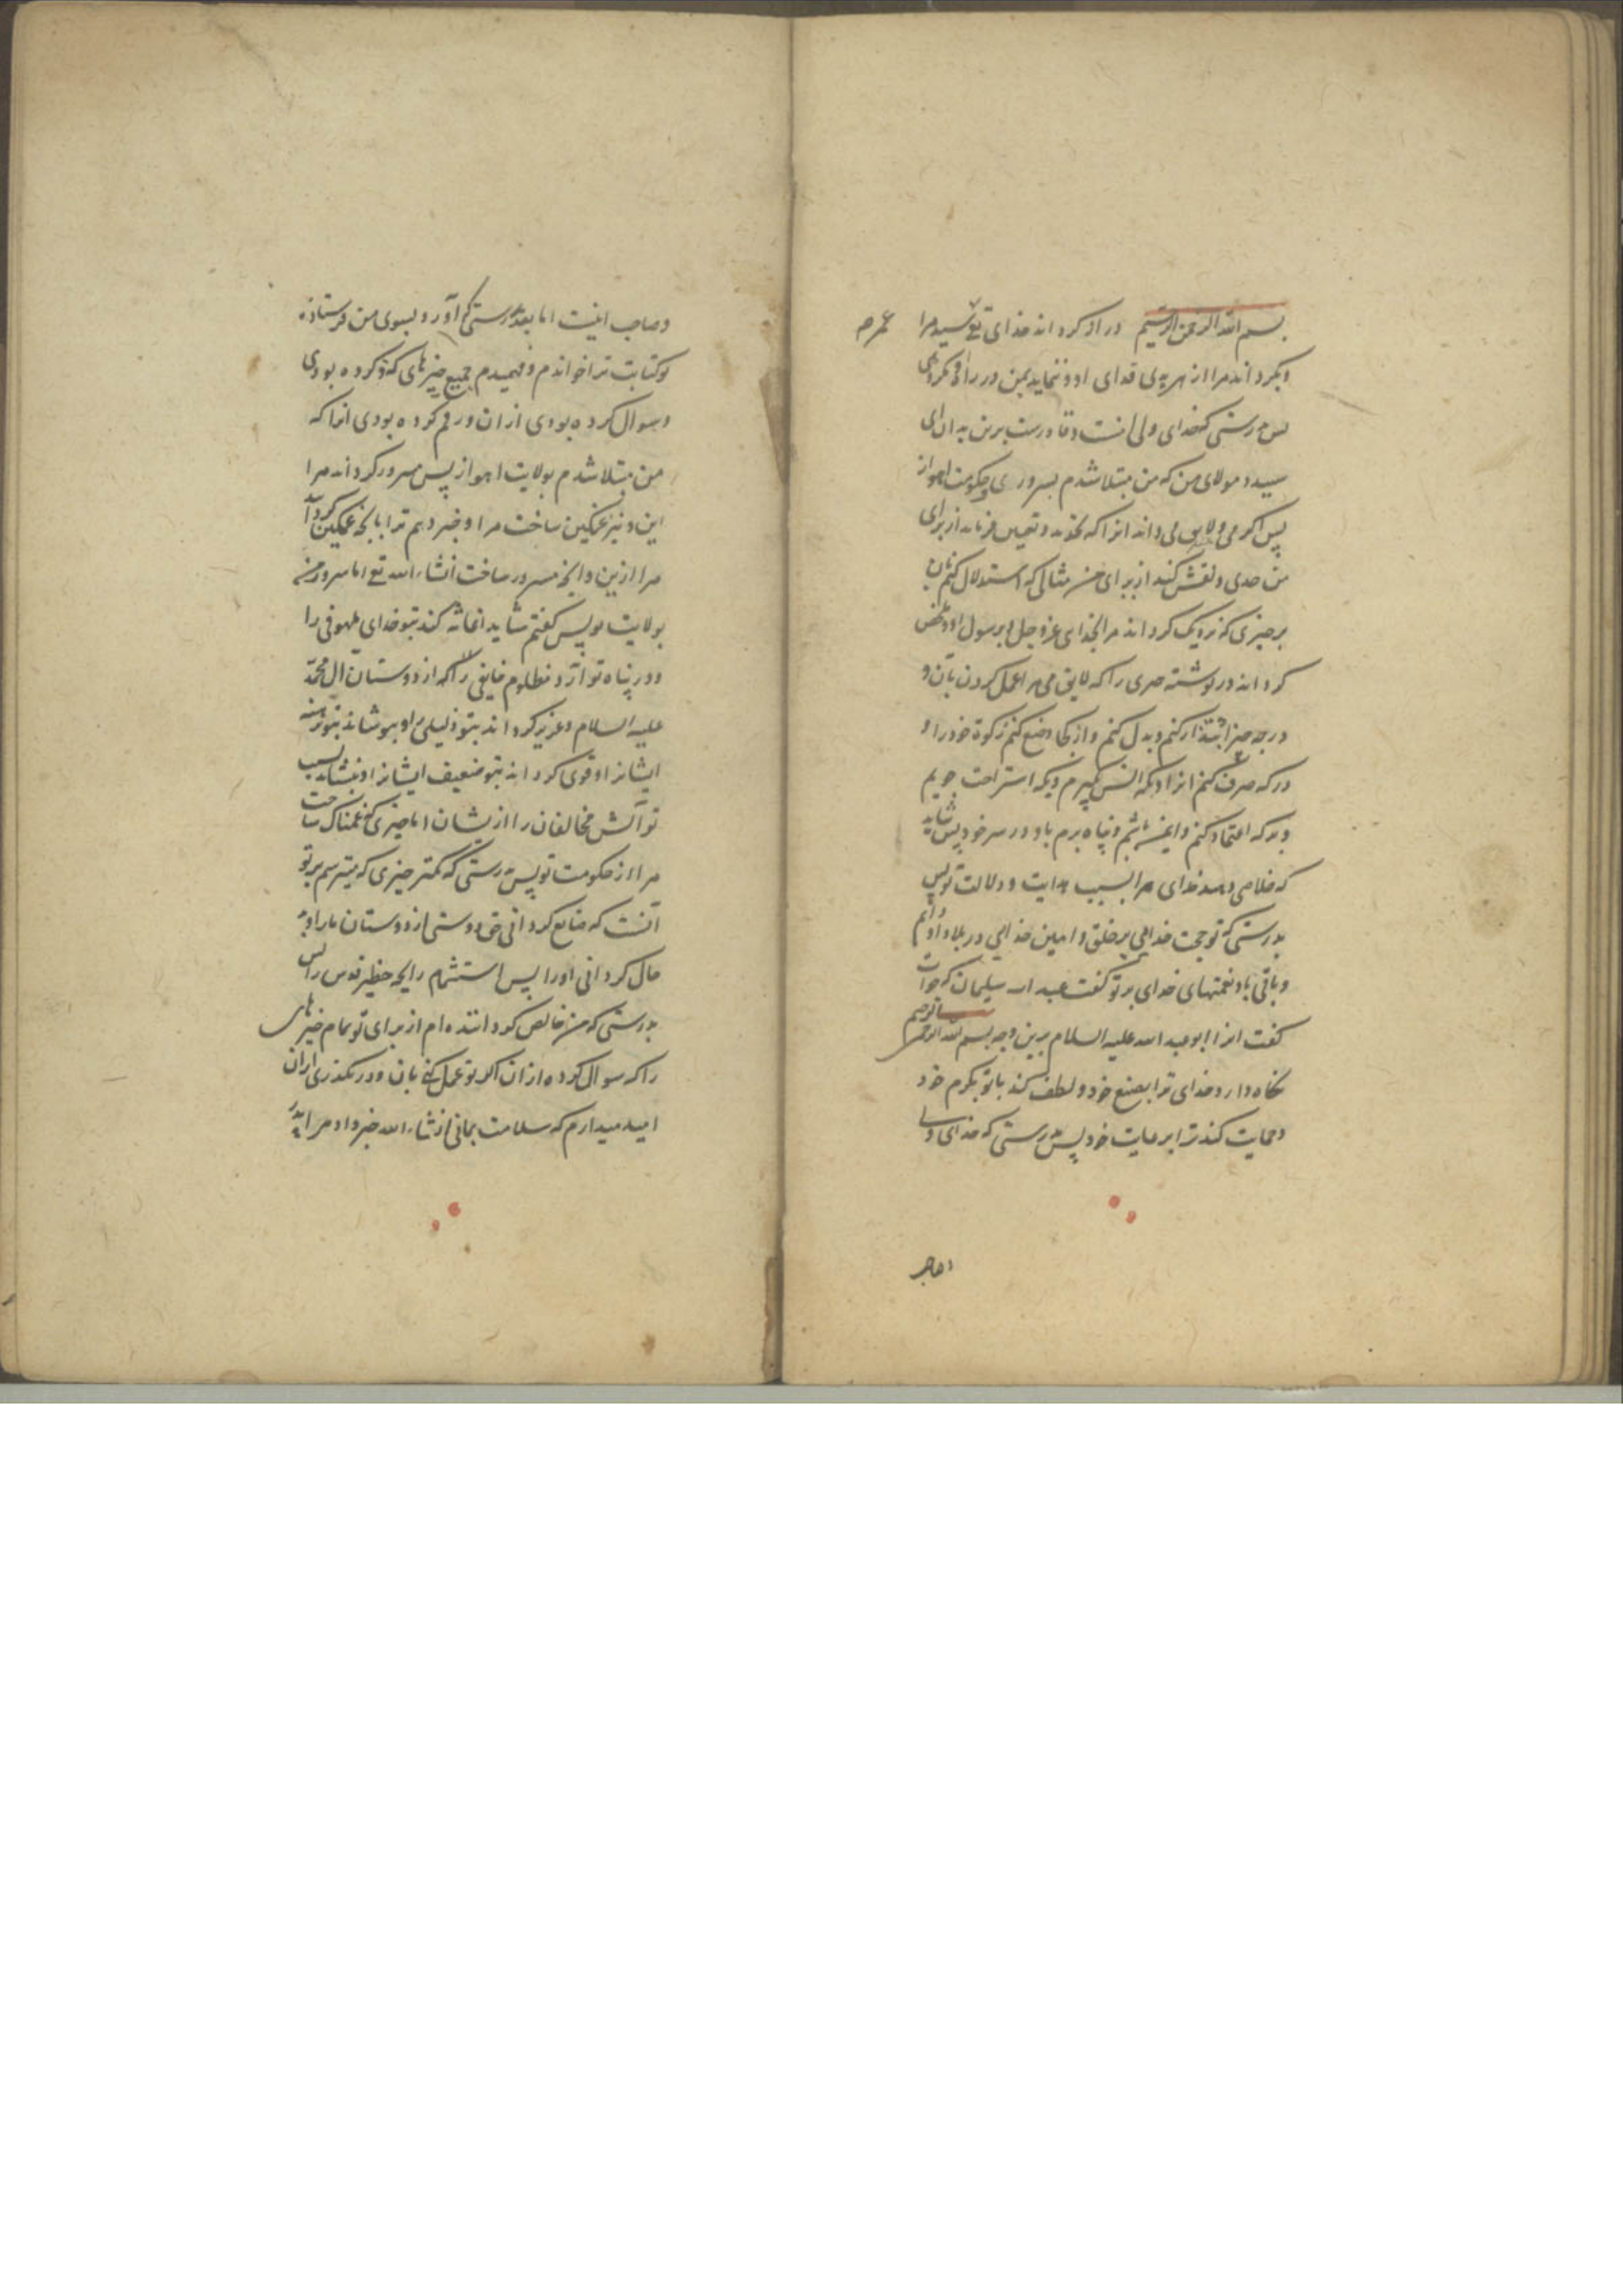 بسم الله الرحمن الرحیم دراز کرداند خدای تع سید مرا عمر
وبکرداند مرا از هر بدی فدای او و ننماید بمن در او مکروهی
پس بدرستی که خدای ولی انست وقادرست برین بدان ای
سید و مولای من که من مبتلا شدم بسروری وحکومت اهواز
پس اکر می داند انرا که از برای
من حدی ونقش کند از برای من مثالی که استدلال کنم بان
برچیزی که نزدیک کرداند مرا بخدای عز وجل وبرسول او
کرداند در نوشته را که لایق مرا عمل کردن بان و
درچه چیز کنم وبدل کنم واز کجا وضع کنم زکوة خود را و
در که صرف کنم انرا وبکه انس کیرم وبکه استراحت جویم
وبه که اعتماد کنم وایمن باشم وپناه برم باو در سر خود پس شاید
که خلاصی دهد خدای مرا بسبب هدایت ودلالت تو پس
بدرستی که تو حجت خدایی بر خلق وامین خدایی در بلاد او دایم
وباقی باد نعمتهای خدای بر تو کفت عبد الله سلیمان که جواب
کفت انرا ابو عبد الله علیه السلام برین وجه بسم الله الرحمن الرحیم
نکاه دارد خدای ترا بصنع خود ولطف کند با تو بکرم خود
وحمایت کند ترا برعایت خود پس بدرستی که خدای ولی
وصاحب اینست اما بعد بدرستی که آورد بسوی من فرستاده
تو کتابت ترا خواندم وفهمیدم جمیع چیزهای که ذکر کرده بودی
وسوال کرده بودی از ان ورقم کرده بودی انرا که
من مبتلا شدم بولایت اهواز پس مسرور کرداند مرا
این ونیز غمکین ساخت مرا وخبر دهم ترا بانچه غمکین کرد
مرا ازین وانچه مسرور ساخت انشاء الله تع اما سرور من
بولایت تو پس کفتم شاید اغاثه کند بتو خدای ملهوفی را
ودر پناه تو آرد مظلوم خایفی را که از دوستان آل محمد
علیه السلام وعزیز کرداند بتو ذلیلی را وبپوشاند بتو برهنه
ایشانرا وقوی کرداند بتو ضعیف ایشانرا وبنشاند بسبب
تو آتش مخالفان را از یشان اما چیزی که غمناک ساخت
مرا از حکومت تو پس بدرستی که کمتر چیزی که میترسم بر تو
آنست که ضایع کردانی حق دوستی از دوستان ما را
حال کردانی او را پس استشمام رایحه حظیره قدس را پس
بدرستی که من خالص کرداننده ام از برای تو تمام چیزهای
را که سوال کرده از ان اکر تو عمل کنی بان ودر نکذری از ان
امید میدارم که سلامت بمانی انشاء الله خبر داد مرا پدر